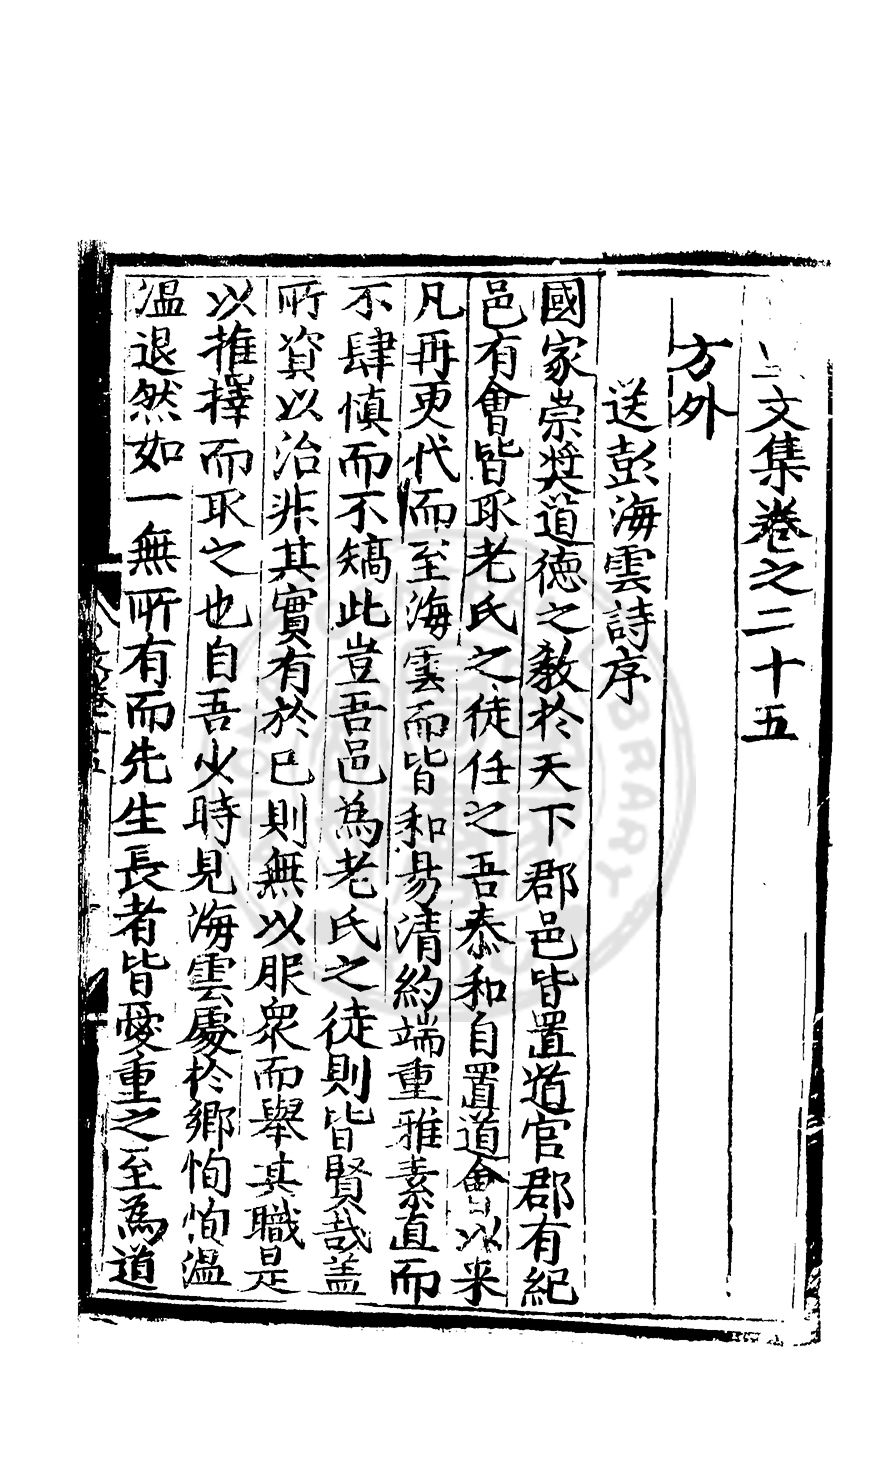 文集卷之二十五
方外
送彭海雲詩序
國家崇奬道德之敎於天下郡邑皆置道官郡有紀
邑有會皆取老氏之徒任之吾泰和自置道會以来
凡再更代而至海雲而皆和易清約端重雅素直而
不肆慎而不矯此豈吾邑為老氏之徒則皆賢哉盖
所資以治非其實有於已則無以服衆而舉其職是
以推擇而取之也自吾少時見海雲處於鄉恂恂温
温退然如一無所有而先生長者皆愛重之至為道